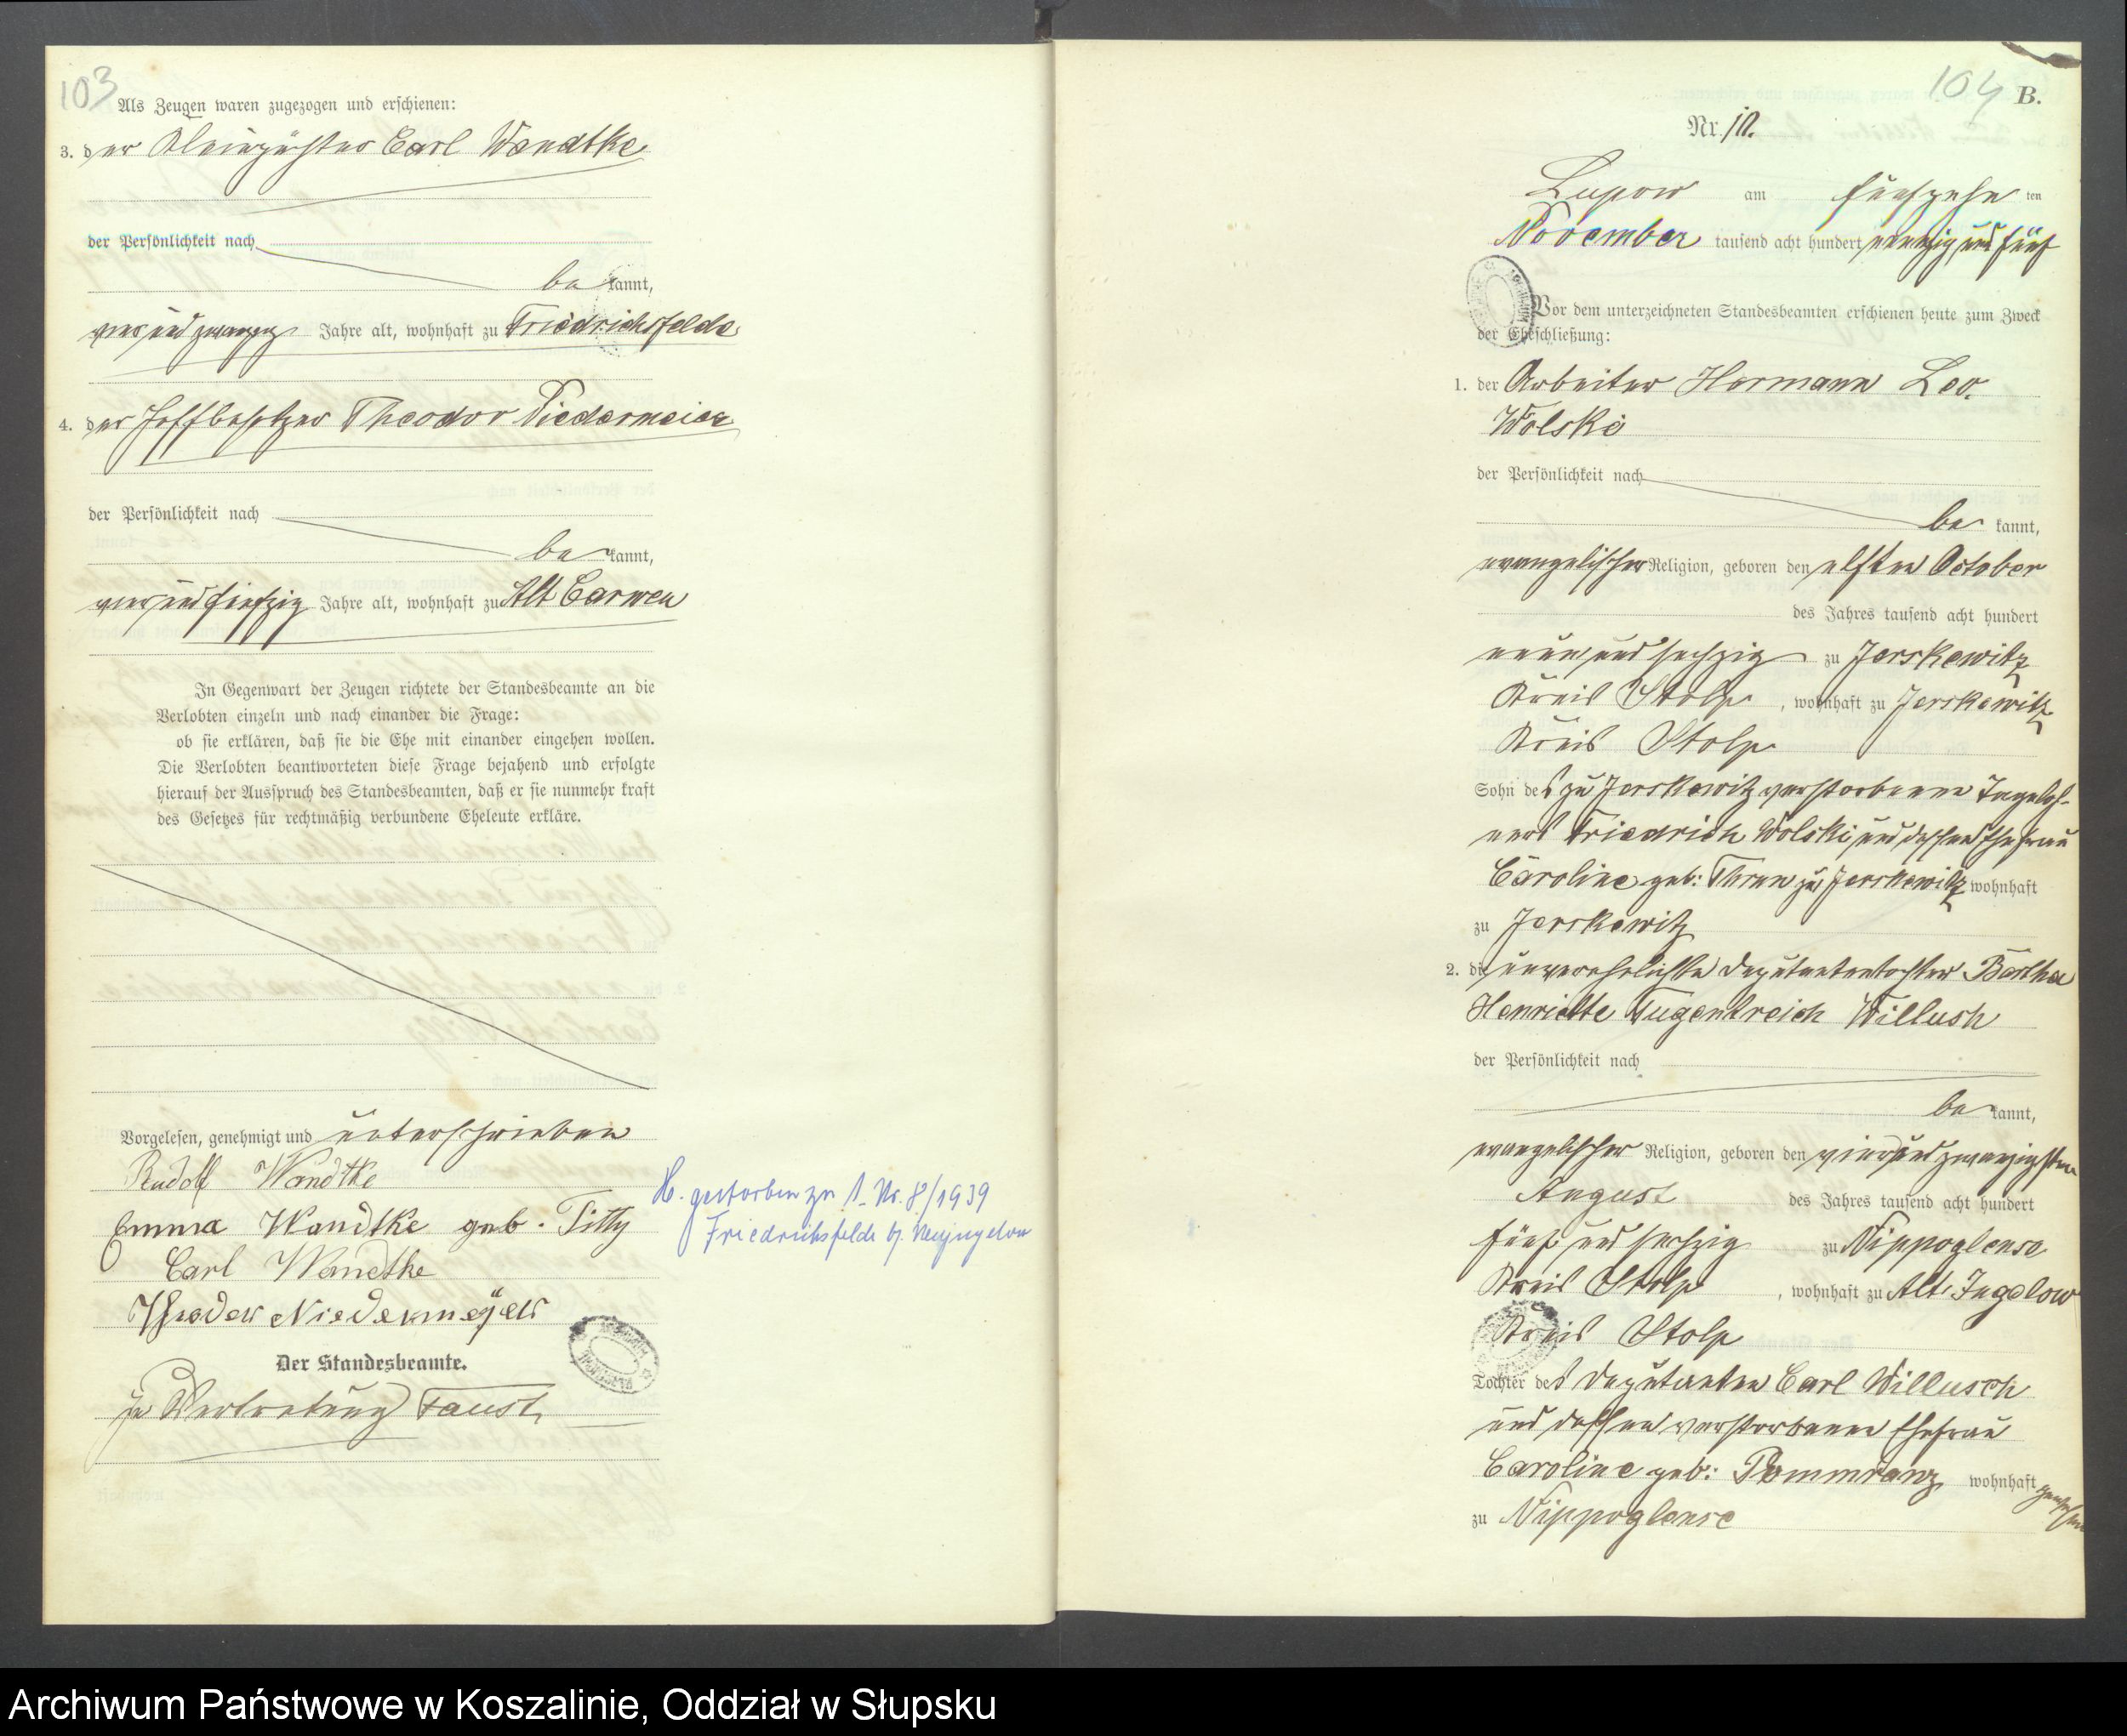 103
Als Zeugen waren zugezogen und erschienen:
3. der Kleinpächter Carl Wandtke
der Persönlichkeit nach
be kannt,
vier und zwanzig Jahre alt, wohnhaft zu Friedrichsfelde
4. der Hoffbesitzer Theodor Niedermeier
der Persönlichkeit nach
be kannt,
vier und fünfzig Jahre alt, wohnhaft zu Alt Carwen
In Gegenwart der Zeugen richtete der Standesbeamte an die
Verlobten einzeln und nach einander die Frage:
ob sie erklären, daß sie die Ehe mit einander eingehen wollen.
Die Verlobten beantworteten diese Frage bejahend und erfolgte
hierauf der Ausspruch des Standesbeamten, daß er sie nunmehr kraft
des Gesetzes für rechtmäßig verbundene Eheleute erkläre.
Vorgelesen, genehmigt und unterschrieben
Rudolf Wandtke
Emma Wandtke geb. Titty
Carl Wandtke
Theodor Niedermeyer
Der Standesbeamte.
In Vertretung Faust
H. gestorben zu 1. Nr. 8/1939
Friedrichsfelde b.
104
B.
Nr. 10.
Lupow am fünfzehn ten
November tausend acht hundert neunzig und fünf
Vor dem unterzeichneten Standesbeamten erschienen heute zum Zweck
der Eheschließung:
1. der Arbeiter Hermann Leo
Wolski
der Persönlichkeit nach
be kannt,
evangelischer Religion, geboren den elften October
des Jahres tausend acht hundert
neun und sechzig zu Jerskewitz
Kreis Stolp, wohnhaft zu Jerskewitz
Kreis Stolp
Sohn des zu Jerskewitz verstorbenen Tagelöh-
ners Friedrich Wolski und dessen Ehefrau
Caroline geb: Thrun zu Jerskewitz wohnhaft
zu Jerskewitz
2. die unverehelichte Deputantentochter Bertha
Henriette Tugendreich Willush
der Persönlichkeit nach
be kannt,
evangelischer Religion, geboren den vier und zwanzigsten
August des Jahres tausend acht hundert
fünf und sechzig zu Nippoglense
Kreis Stolp, wohnhaft zu Alt Jugelow
Kreis Stolp
Tochter des Deputanten Carl Willusch
und dessen verstorbenen Ehefrau
Caroline geb: Pommranz wohnhaft gewesen
zu Nippoglense
Archiwum Państwowe w Koszalinie, Oddział w Słupsku